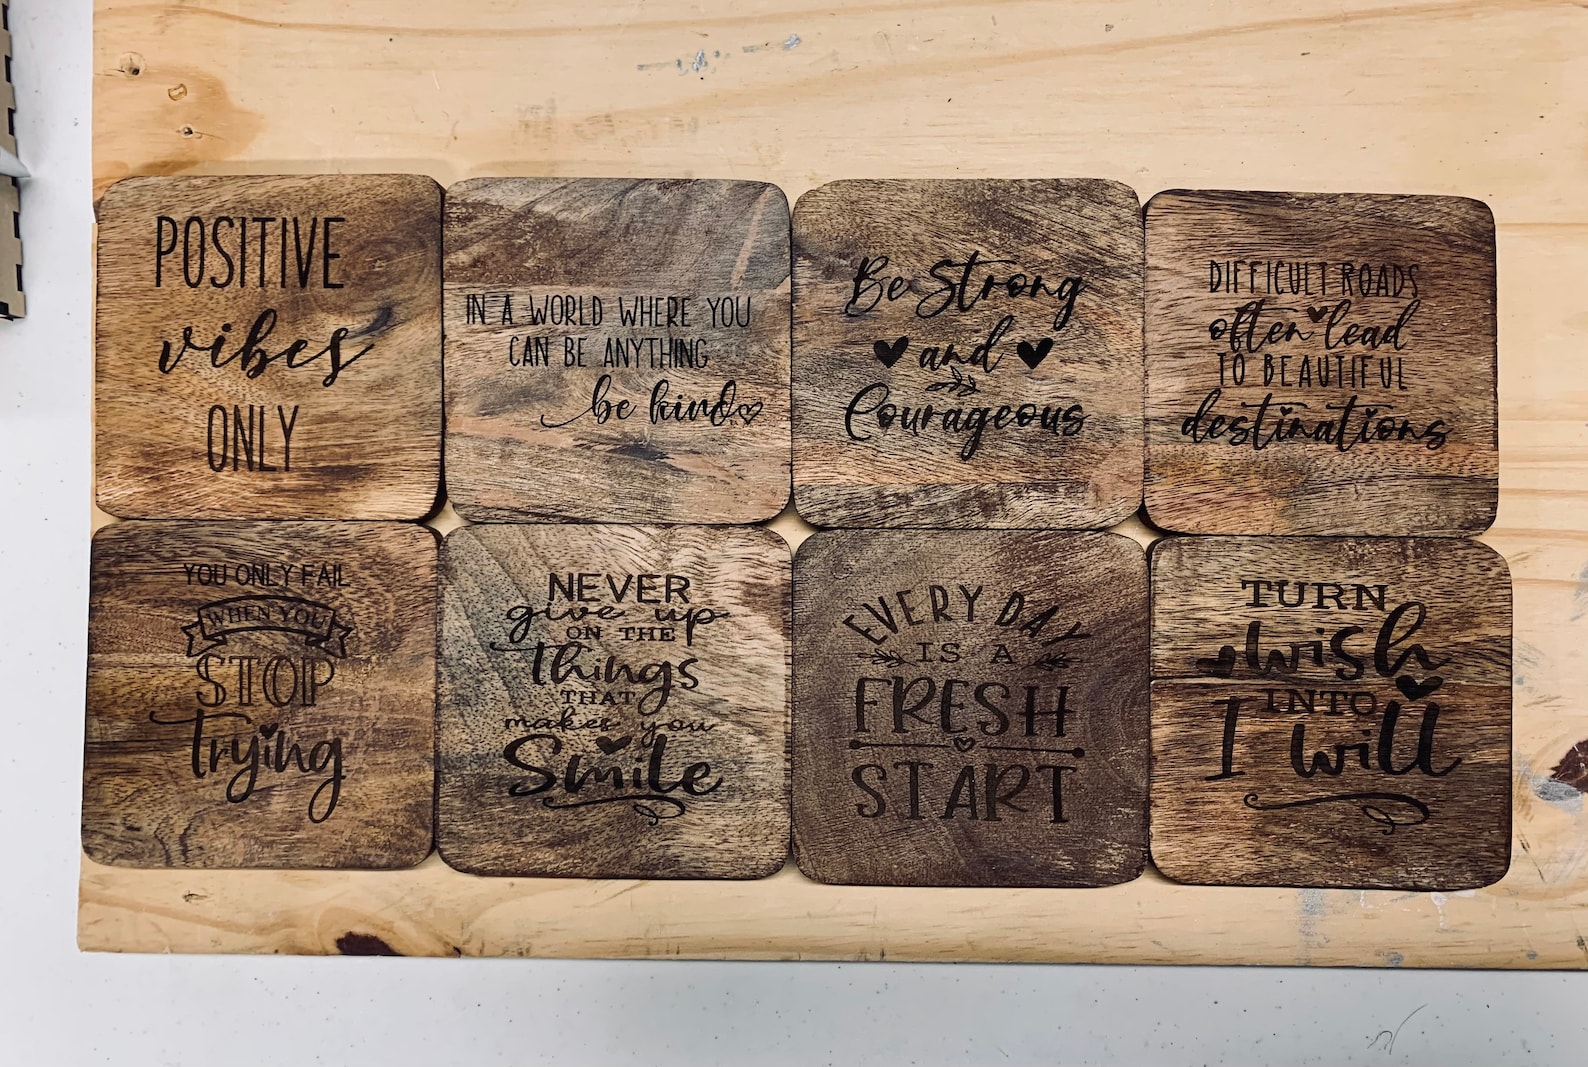 POSITIVE
vibes
ONLY
IN A WORLD WHERE YOU
CAN BE ANYTHING
be kind
Be Strong
and
Courageous
DIFFICULT ROADS
often lead
TO BEAUTIFUL
destinations
YOU ONLY FAIL
WHEN YOU
STOP
Trying
NEVER
give up
ON THE
things
THAT
makes you
Smile
EVERY DAY
IS A
FRESH
START
TURN
wish
INTO
I will